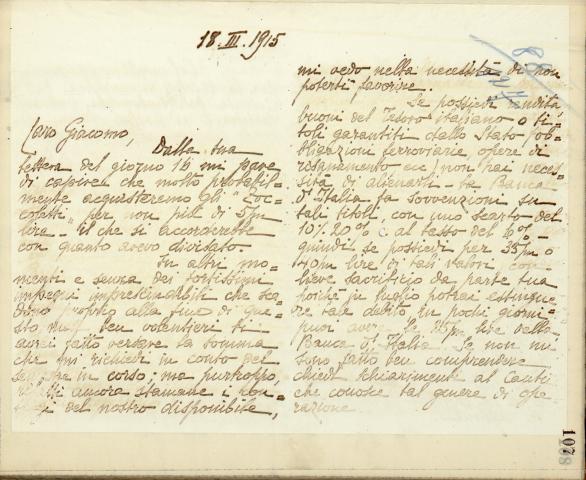 18. III. 1915
Caro Giacomo,
Dalla tua
lettera del giorno 15 mi pare
di capire che molto probabil=
mente acquisteremo gli "Coc-
cofatti" per non più di 5/m
lire - il che si accorderebbe
con quanto avevo divisato.
In altri mo=
menti e senza dei fortissimi
impegni imprescindibili che sca=
dono proprio alla fine di que=
sto ben volentieri ti
avrei fatto versare la somma
che mi richiedi in conto per
in corso; ma purtroppo,
ancora stamane i
del nostro disponibile,
mi vedo nella necessità di non
poterti favorire.
Se possiedi rendita
buoni del Tesoro italiano o ti=
toli garantiti dallo Stato (ob=
bligazioni ferroviarie, opere di
risanamento ecc) non hai neces=
sità di alienarli. La Banca
d'Italia fa sovvenzioni su
tali titoli, con uno scarto del
10% 20% al tasso del 6% -
quindi se possiedi per 35/m o
40/m lire di tali valori, con
lieve sacrificio da parte tua
poichè in luglio potrai estingue=
re tale debito in pochi giorni
puoi avere le 35/m lire dalla
Banca d'Italia. Se non mi
sono fatto ben comprendere
chiedi schiarimenti al
che conosce tal genere di ope
razione.
88
107
108